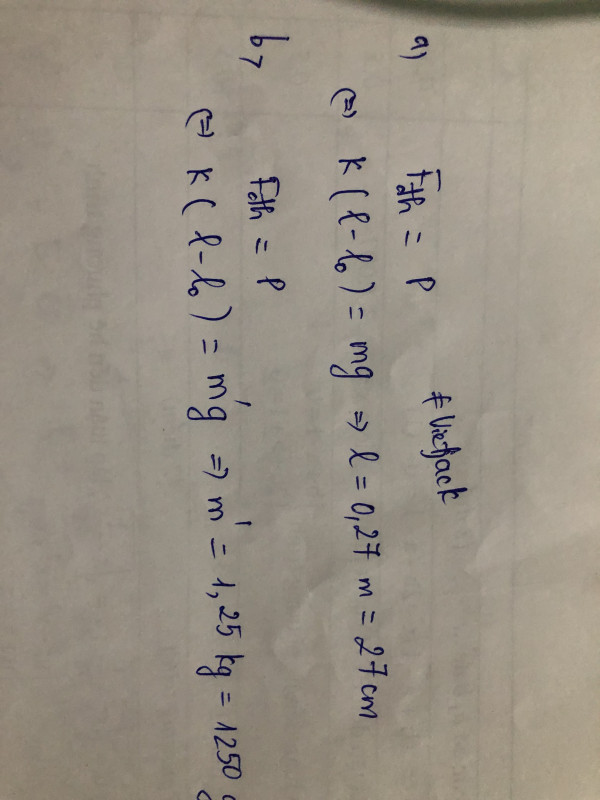 a,
F_đh = P
# Vietjack
(=) K(l-l₀) = mg => l = 0,27 m = 27 cm
b,
F_đh = P
(=) K(l-l₀) = m'g => m' = 1,25 kg = 1250 g